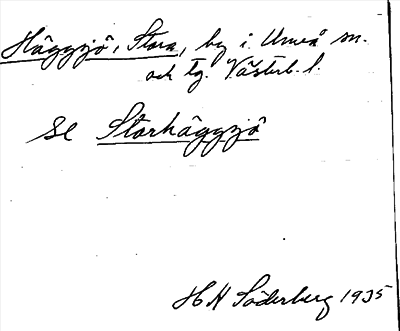 Häggsjö, Stora, by i Umeå sn.
och tg. Västerb. l.
se Storhäggsjö
H H Söderberg 1935